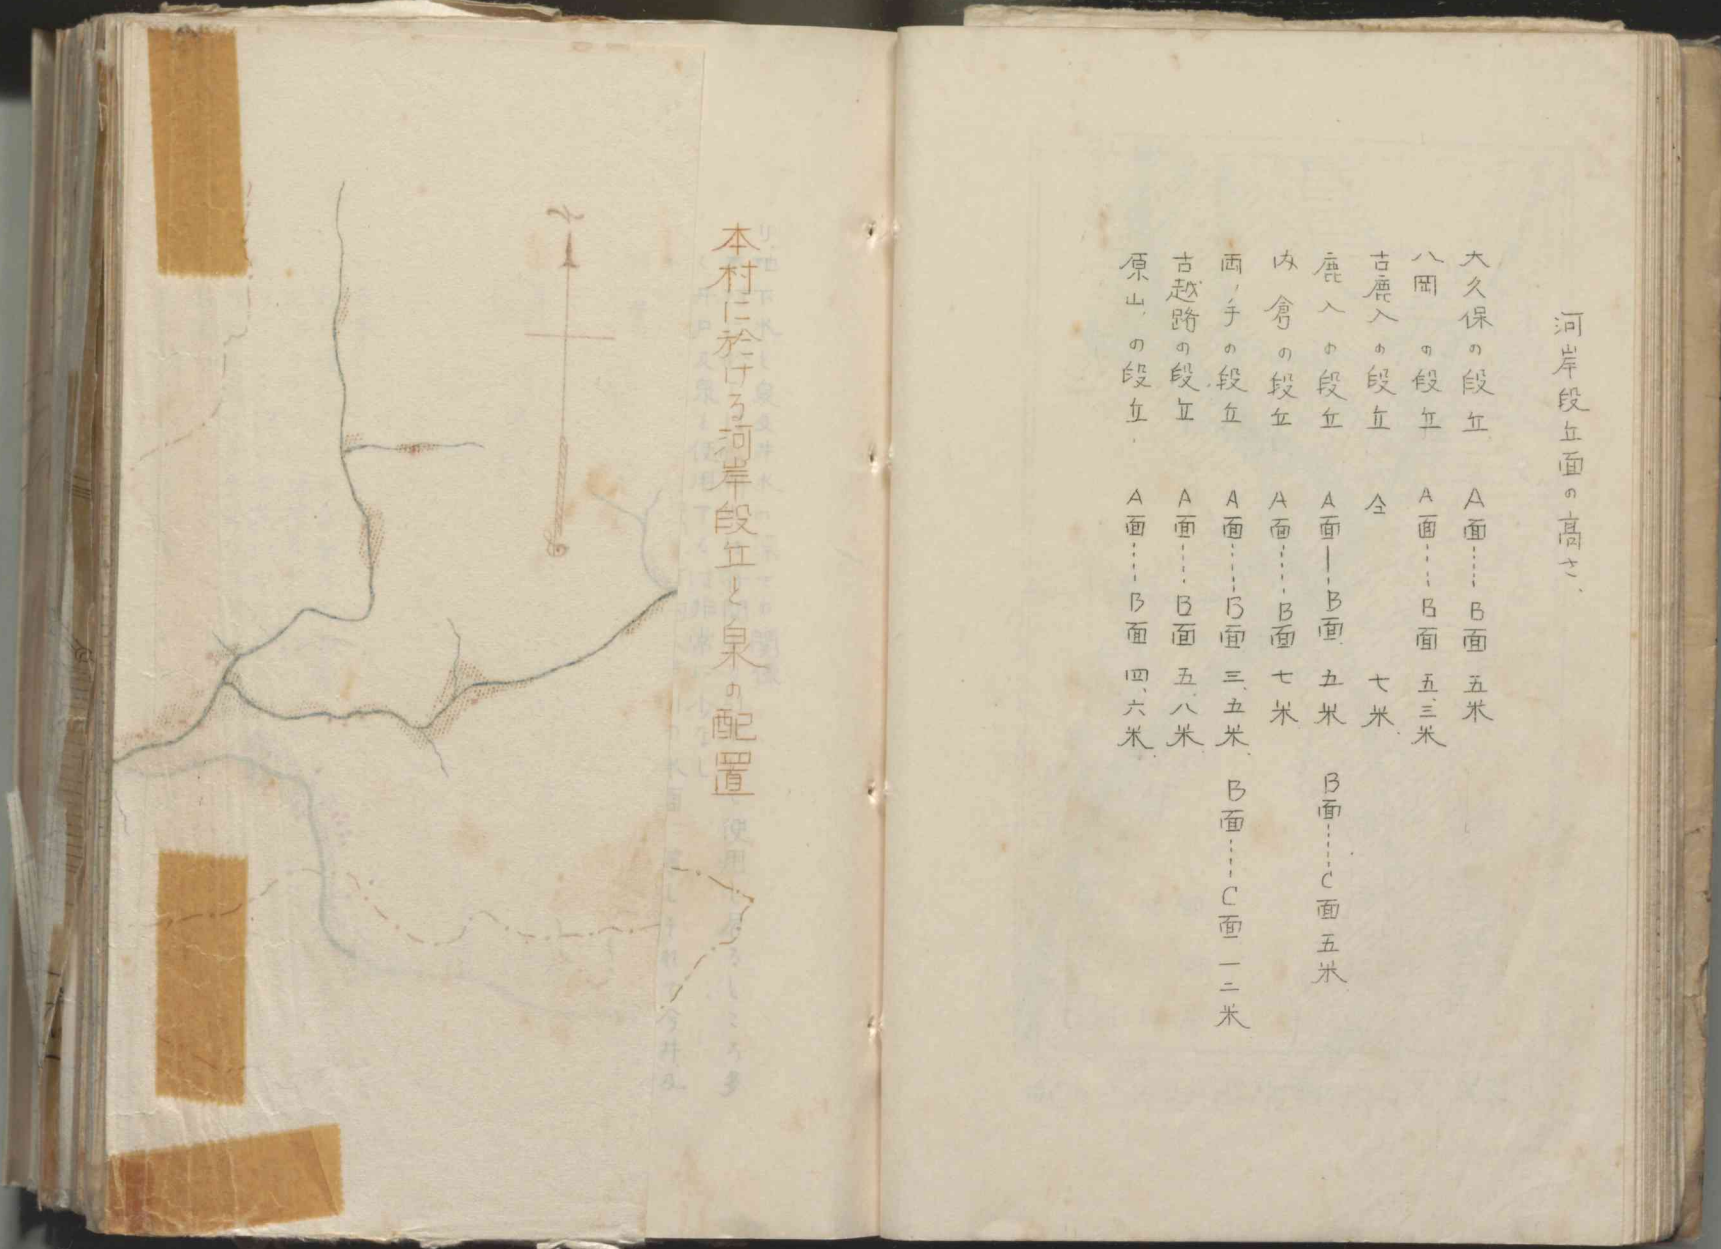 河岸段丘面の高さ、
大久保の段丘 A面……B面 五米
八岡の段丘 A面……B面 五、三米
古鹿入の段丘 仝 七米
鹿入の段丘 A面―B面 九米 B面……C面 五米
内倉の段丘 A面……B面 七米
西ノ手の段丘 A面……B面 三、五米 B面……C面 一二米
古越路の段丘 A面……B面 五、八米
原山、の段丘 A面……B面 四、六米
本村に於ける河岸段丘と泉の配置